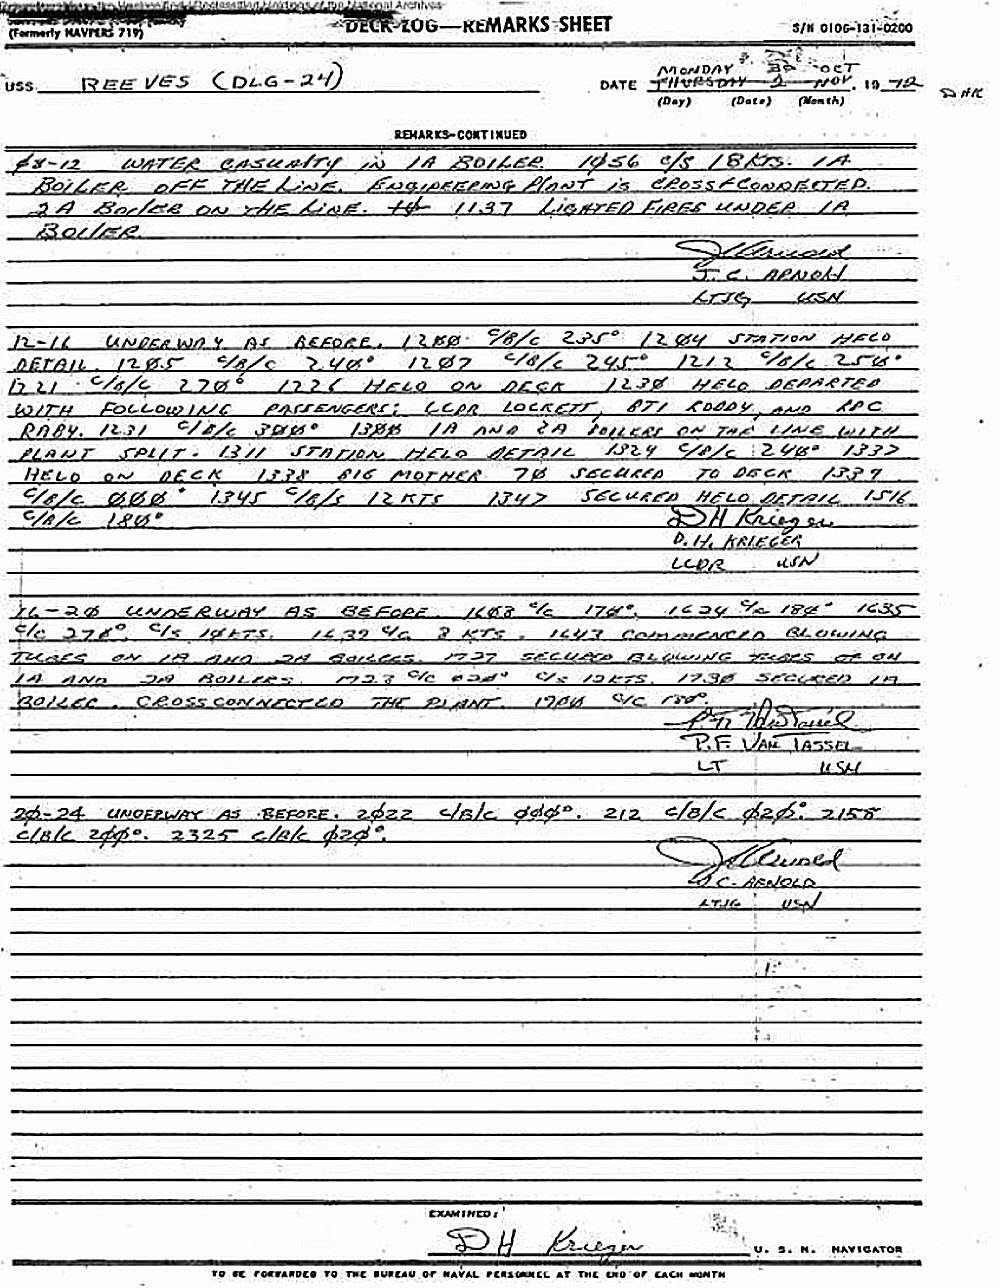 Reproduced from the Unclassified/Declassified Holdings of the National Archives
DECK LOG—REMARKS SHEET
(Formerly NAVPERS 719)
S/N 0106-131-0200
USS REEVES (DLG-24)
MONDAY 30 OCT
DATE THURSDAY 2 NOV, 19 72 DHK
(Day) (Date) (Month)
REMARKS-CONTINUED
Ø8-12 WATER CASUALTY IN 1A BOILER. 1Ø56 C/S 18 KTS. 1A
BOILER OFF THE LINE. ENGINEERING PLANT IS CROSSCONNECTED.
2A BOILER ON THE LINE. 1137 LIGHTED FIRES UNDER 1A
BOILER.
J C Arnold
J. C. ARNOLD
LTJG USN
12-16 UNDERWAY AS BEFORE. 12ØØ C/B/C 235° 12Ø4 STATION HELO
DETAIL. 12Ø5 C/B/C 24Ø° 12Ø7 C/B/C 245° 1212 C/B/C 25Ø°
1221 C/B/C 27Ø° 1226 HELO ON DECK 123Ø HELO DEPARTED
WITH FOLLOWING PASSENGERS; LCDR LOCKETT, BT1 RODDY, AND RPC
RABY. 1231 C/B/C 3ØØ° 13ØØ 1A AND 2A BOILERS ON THE LINE WITH
PLANT SPLIT. 1311 STATION HELO DETAIL 1324 C/B/C 24Ø° 1337
HELO ON DECK 1338 BIG MOTHER 7Ø SECURED TO DECK 1339
C/B/C ØØØ° 1345 C/B/S 12 KTS 1347 SECURED HELO DETAIL 1516
C/B/C 18Ø°
D H Krieger
D. H. KRIEGER
LCDR USN
16-2Ø UNDERWAY AS BEFORE. 16Ø8 C/C 17Ø°. 1624 C/C 18Ø° 1635
C/C 27Ø°. C/S 1Ø KTS. 1639 C/S 8 KTS. 1643 COMMENCED BLOWING
TUBES ON 1A AND 2A BOILERS. 1727 SECURED BLOWING TUBES ON
1A AND 2A BOILERS. 1723 C/C Ø2Ø° C/S 12 KTS. 173Ø SECURED 1A
BOILER. CROSSCONNECTED THE PLANT. 19ØØ C/C 18Ø°.
P. F. Van Tassel
P. F. VAN TASSEL
LT USN
2Ø-24 UNDERWAY AS BEFORE. 2Ø22 C/B/C ØØØ°. 212 C/B/C Ø2Ø°. 2158
C/B/C 2ØØ°. 2325 C/B/C Ø2Ø°.
J C Arnold
J C. ARNOLD
LTJG USN
EXAMINED:
D H Krieger
U. S. N. NAVIGATOR
TO BE FORWARDED TO THE BUREAU OF NAVAL PERSONNEL AT THE END OF EACH MONTH